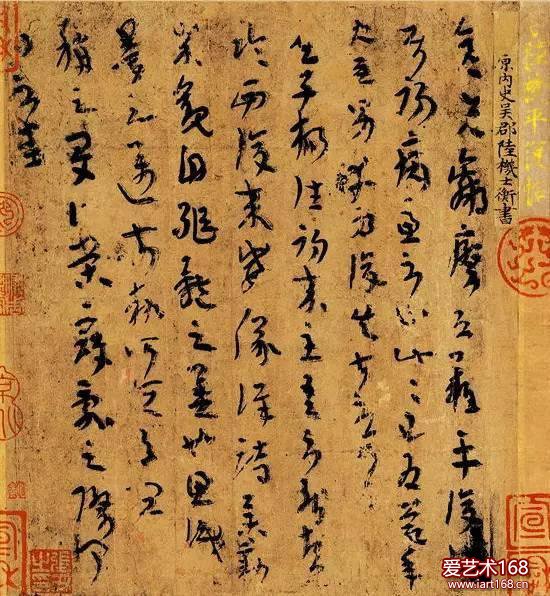 晉陸機平復帖
原內史吳郡陸機士衡書
彥先羸瘵恐難平復往屬
初病慮不止此此已為慶承使
唯男幸為復失前憂耳吳
子楊往初來主吾不能盡
臨西復來威儀詳跱舉動
成觀自軀體之美也思識
量之邁前執所恒有宜
稱之夏伯榮寇亂之際聞
問不悉
爱艺术168
www.iart168.cn